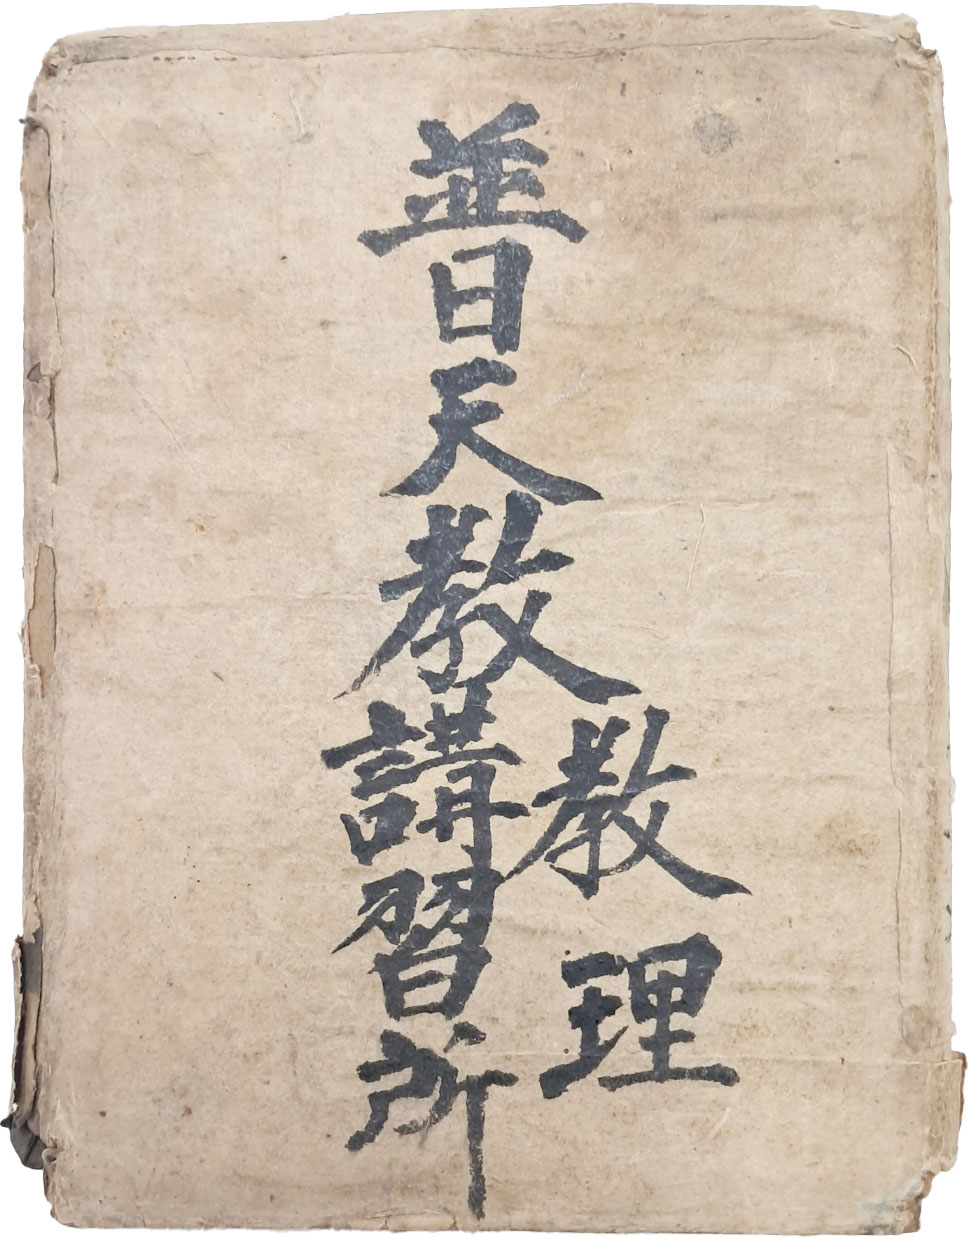 普天教講習所
教理